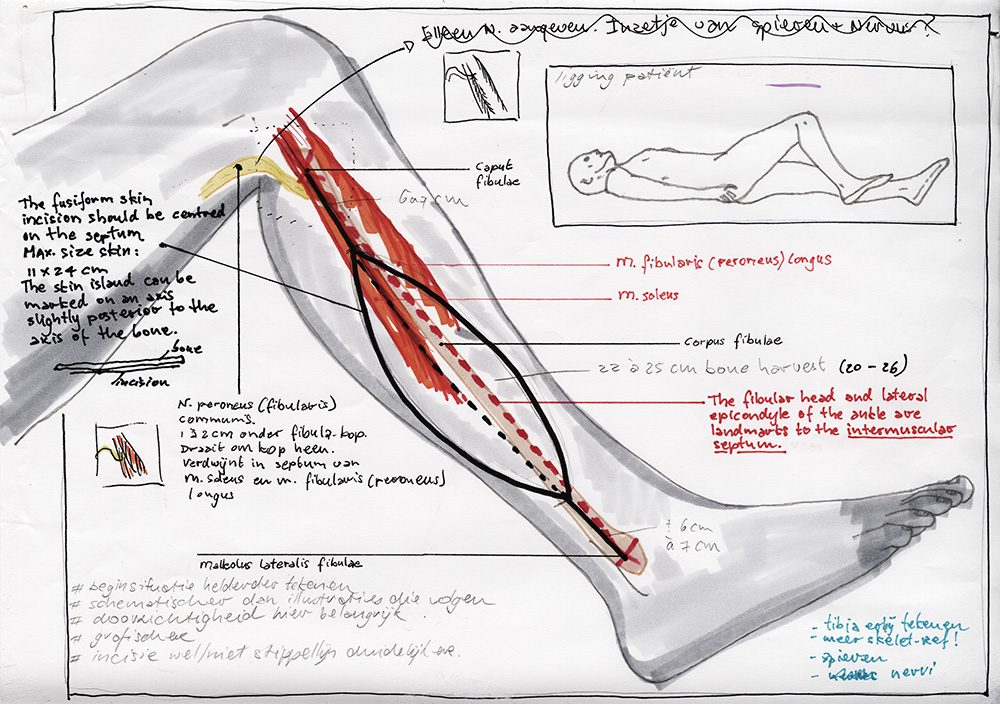 Alleen N. aangeven. Inzetje van spieren + nerven?
ligging patiënt
caput
fibulae
6 à 7 cm
The fusiform skin
incision should be centred
on the septum
Max. size skin:
11 x 24 cm
The skin island can be
marked on an axis
slightly posterior to the
axis of the bone.
bone
incision
m. fibularis (peroneus) longus
m. soleus
corpus fibulae
22 à 25 cm bone harvest (20 - 26)
The fibular head and lateral
epicondyle of the ankle are
landmarks to the intermuscular
septum.
N. peroneus (fibularis)
communis.
1 à 2 cm onder fibula-kop.
Draait om kop heen.
Verdwijnt in septum van
m. soleus en m. fibularis (peroneus)
longus
± 6 cm
à 7 cm
malleolus lateralis fibulae
# beginsituatie helderder tekenen
# schematischer dan illustraties die volgen
# doorzichtigheid hier belangrijk.
# grafischer
# incisie wel/niet stippellijn duidelijker.
- tibia erbij tekenen
- meer skelet-ref!
- spieren
- nervi